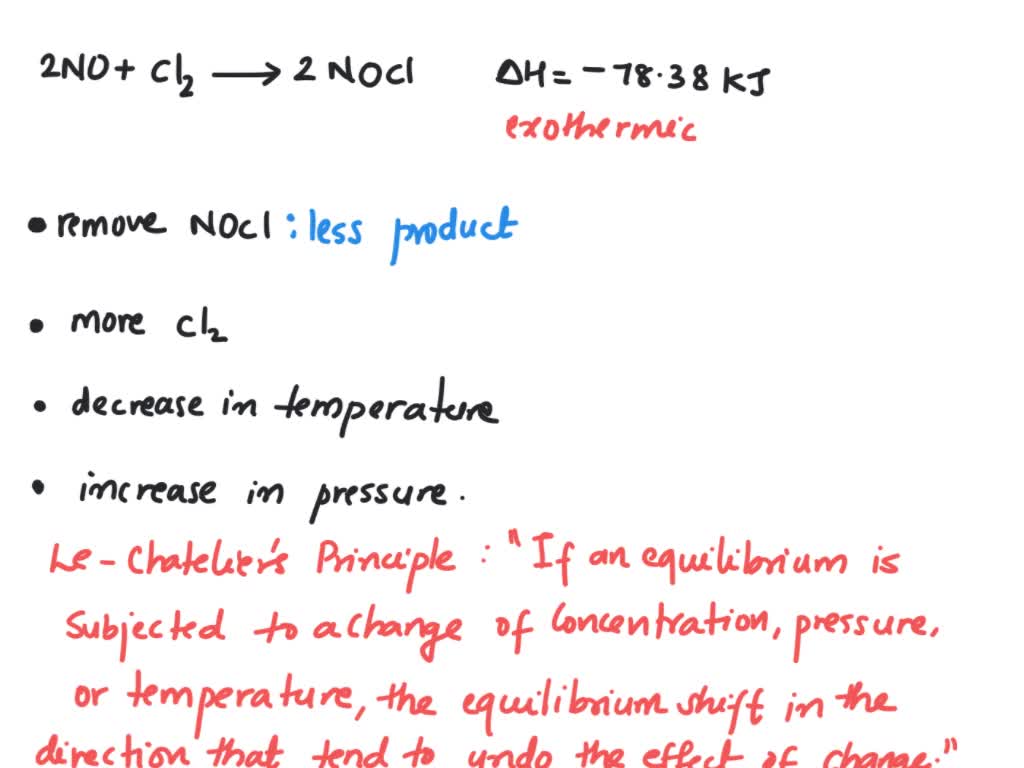 2NO + Cl₂ → 2 NOCl ΔH = -78.38 KJ
exothermic
• remove NOCl : less product
• more Cl₂
• decrease in temperature
• increase in pressure.
Le-Chatelier's Principle : "If an equilibrium is
Subjected to a change of Concentration, pressure,
or temperature, the equilibrium shift in the
direction that tend to undo the effect of change."